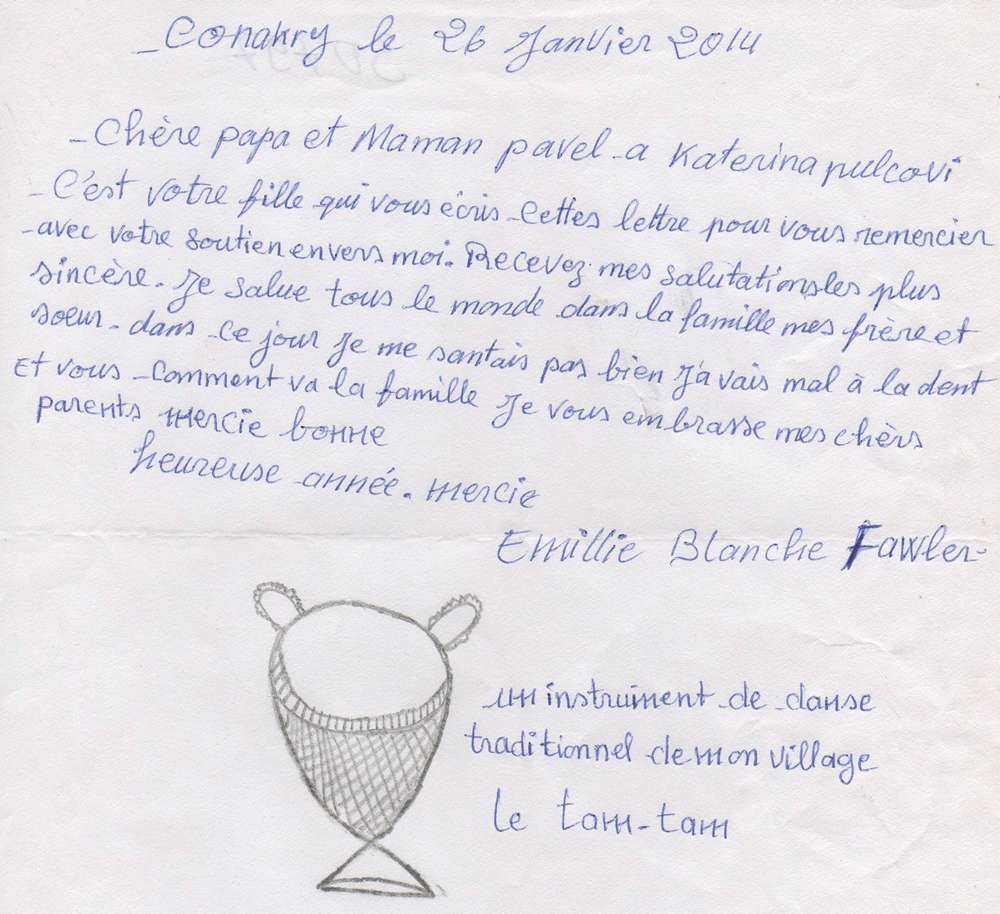 Conakry le 26 Janvier 2014
- Chère papa et Maman pavel a Katerina pulcovi
- C'est votre fille qui vous écris cettes lettre pour vous remercier
avec votre soutien envers moi. Recevez mes salutations les plus
sincère. Je salue tous le monde dans la famille mes frère et
soeur. dans ce jour je me santais pas bien j'avais mal à la dent
Et vous comment va la famille je vous embrasse mes chèrs
parents mercie bonne
heureuse année. mercie
Emillie Blanche Fawler
un instrument de danse
traditionnel de mon village
le tam-tam